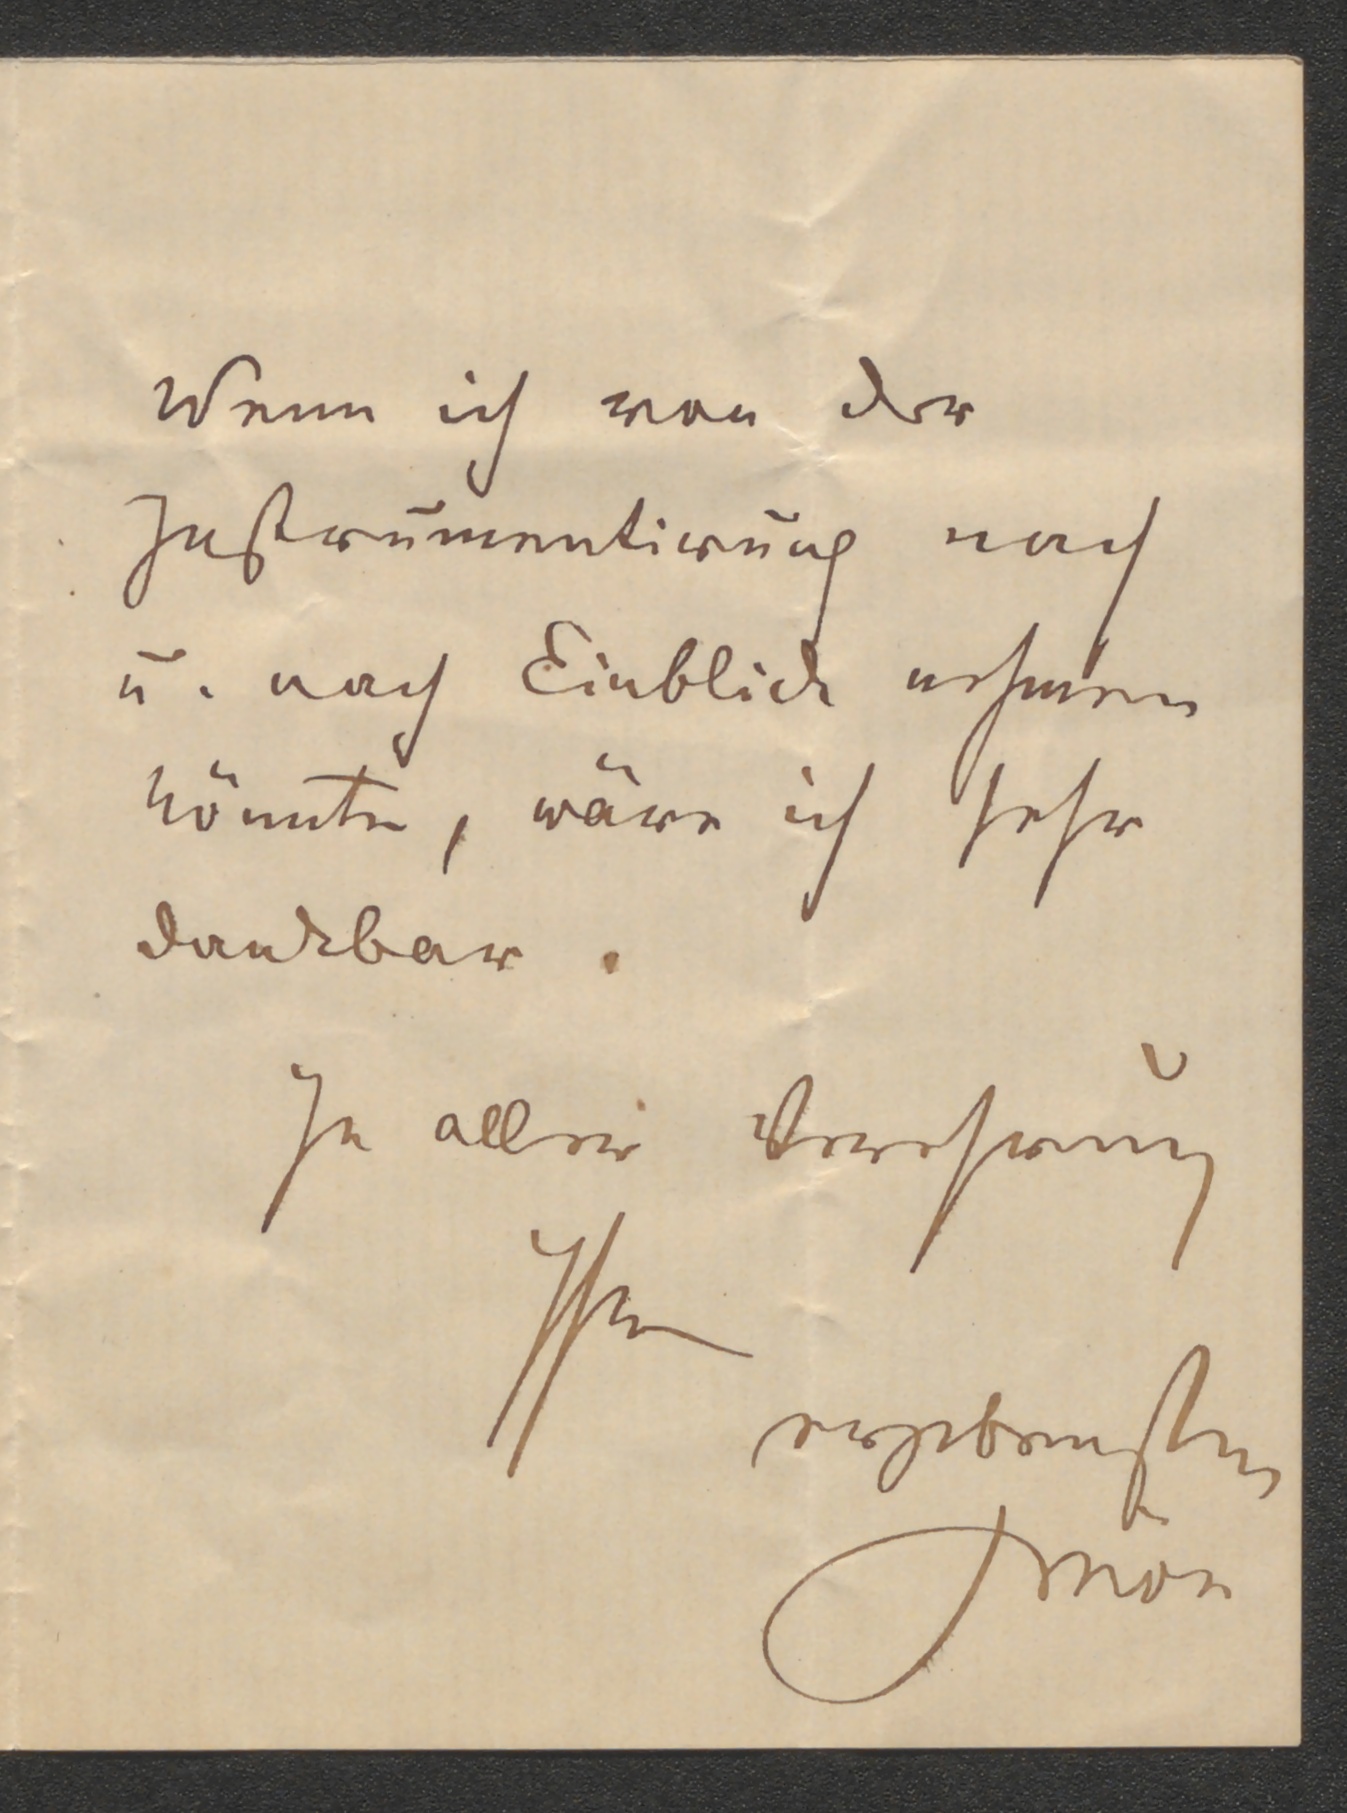 Wenn ich von der
Instrumentirung nach
u. nach Einblick nehmen
könnte, wäre ich sehr
dankbar.
In aller Verehrung
Ihr
ergebenster